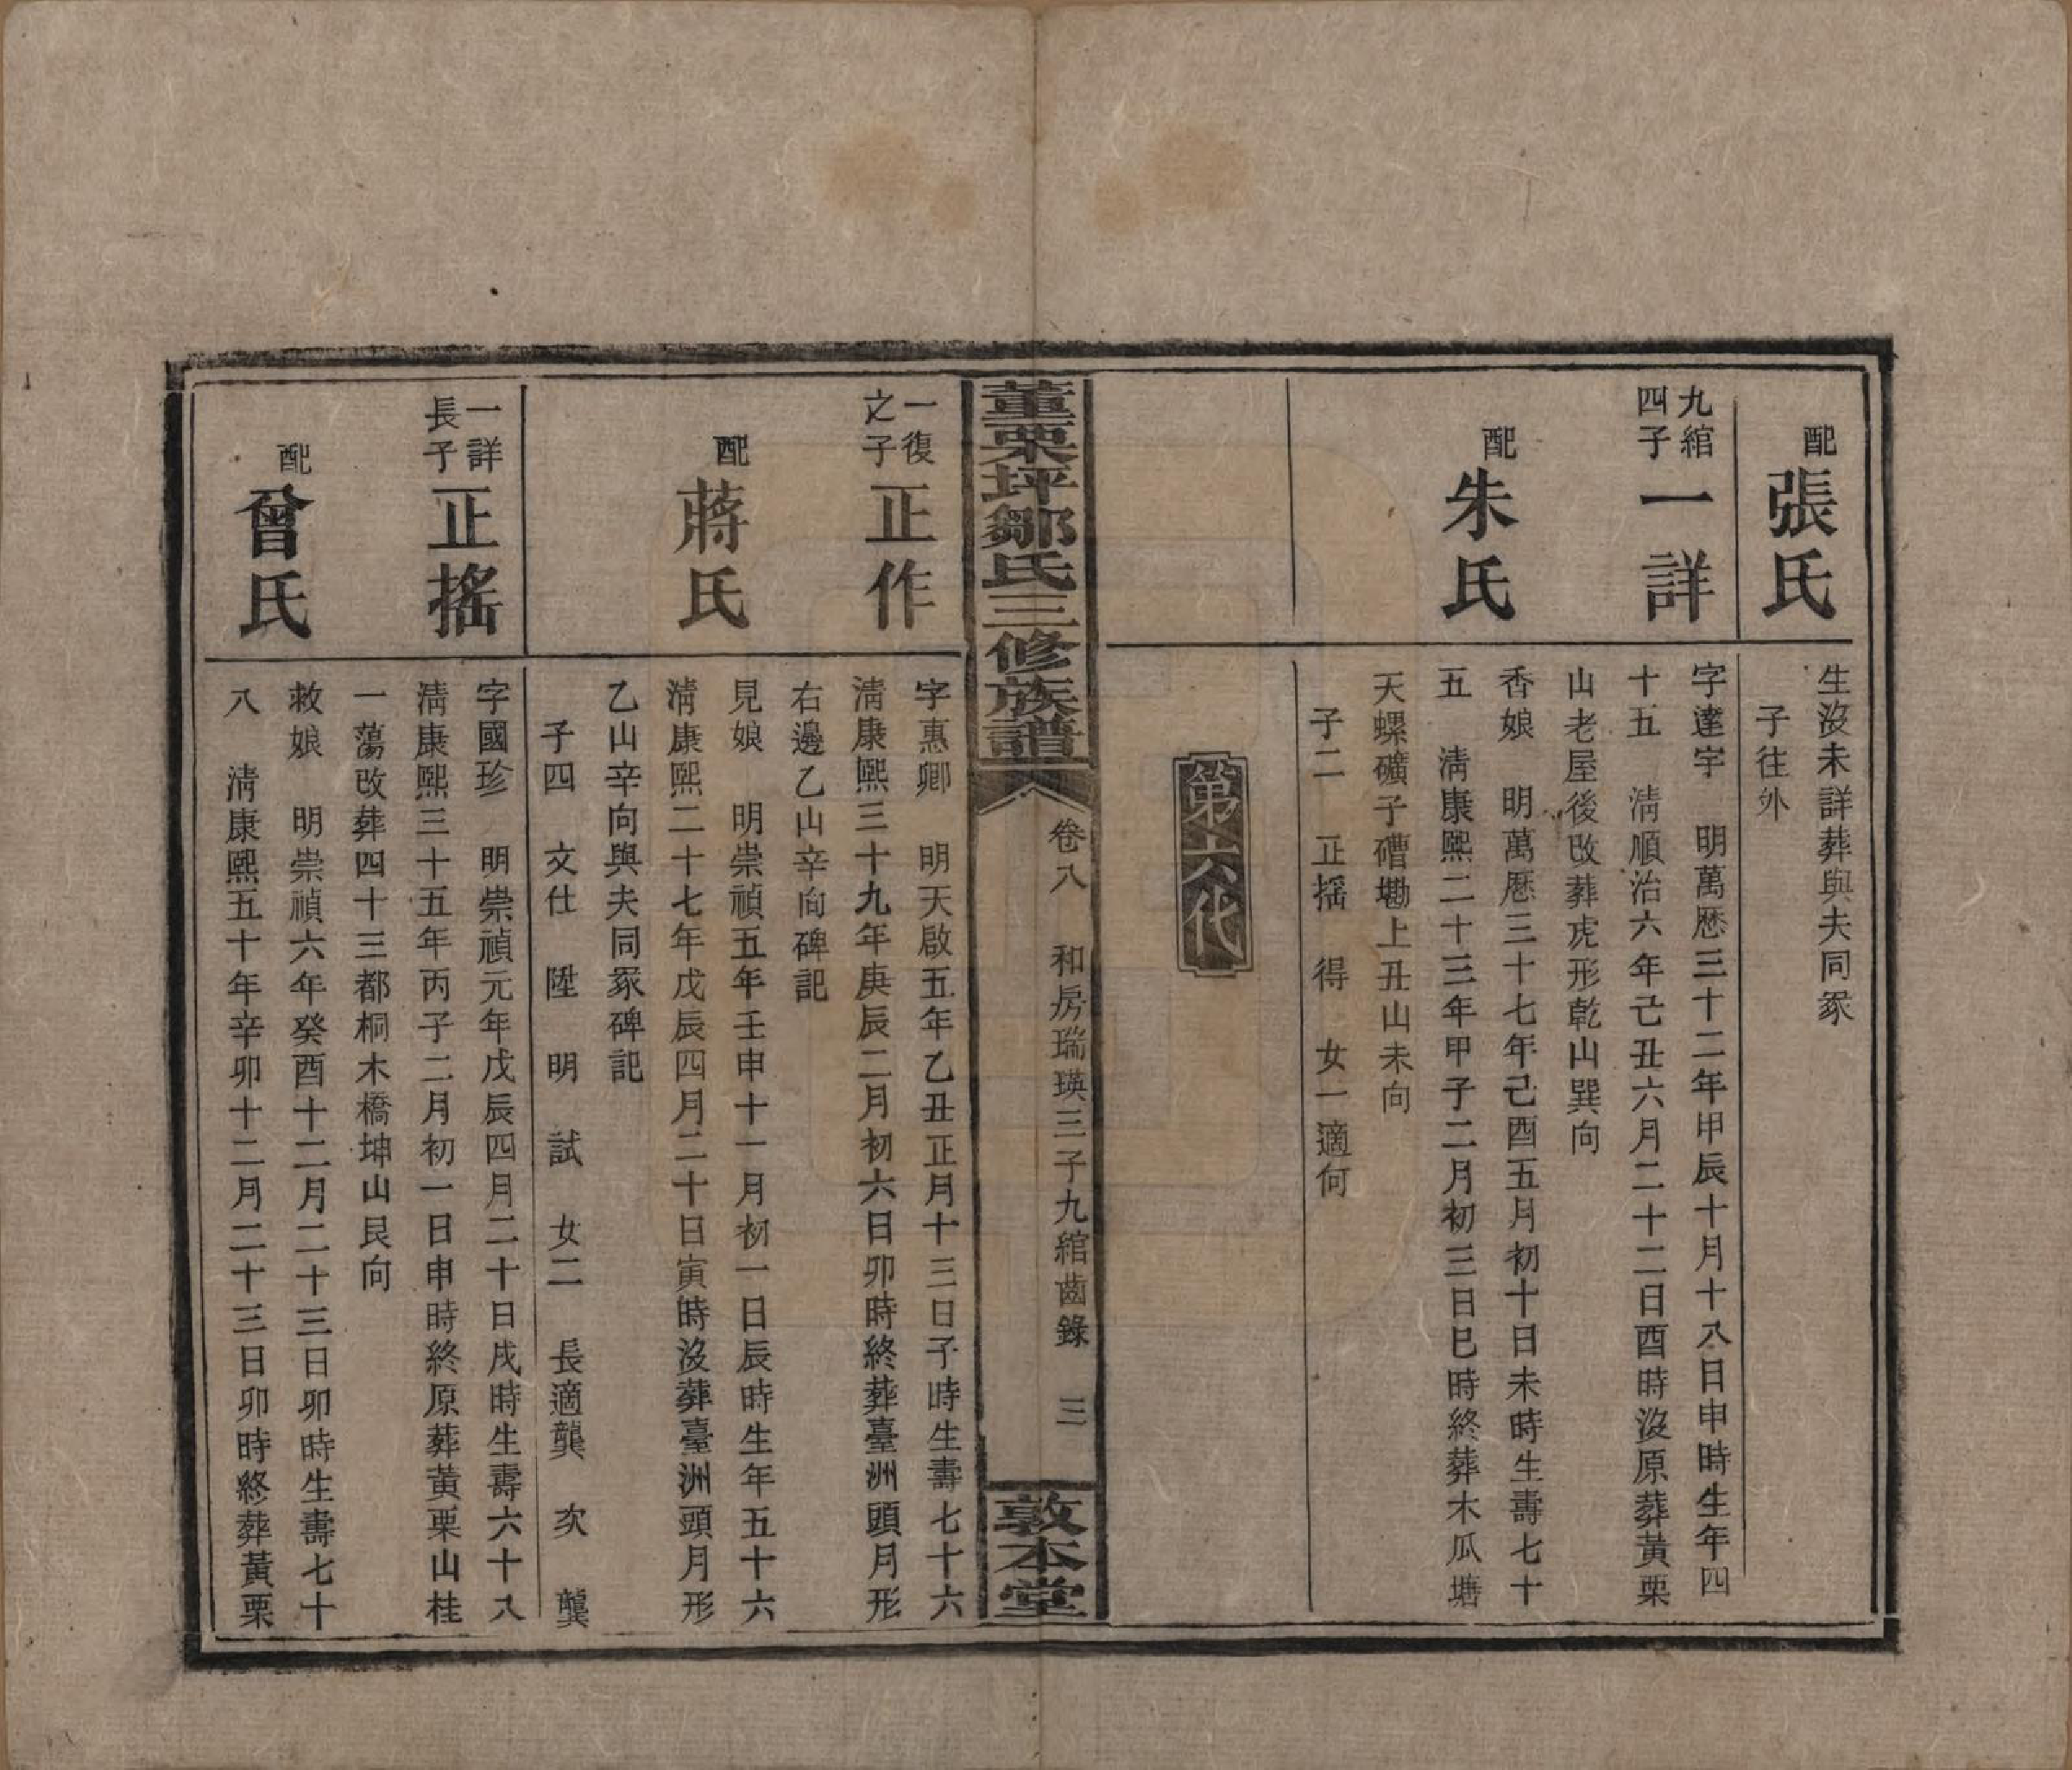 配張氏
生沒未詳葬與夫同冢
子往外
九綰四子
一詳
字達宇　明萬歷三十二年甲辰十月十八日申時生年四
十五　清順治六年己丑六月二十二日酉時沒原葬黃栗
山老屋後改葬虎形乾山巽向
配朱氏
香娘　明萬歷三十七年己酉五月初十日未時生壽七十
五　清康熙二十三年甲子二月初三日巳時終葬木瓜塘
天螺礦子磄墈上丑山未向
子二　正搖　得　女一適何
第六代
董栗坪鄒氏三修族譜
卷八　和房瑞瑛三子九綰齒錄　三
敦本堂
一復之子
正作
字惠卿　明天啟五年乙丑正月十三日子時生壽七十六
清康熙三十九年庚辰二月初六日卯時終葬臺洲頭月形
右邊乙山辛向碑記
配蔣氏
見娘　明崇禎五年壬申十一月初一日辰時生年五十六
清康熙二十七年戊辰四月二十日寅時沒葬臺洲頭月形
乙山辛向與夫同冢碑記
子四　文仕　陞　明　試　女二　長適龔　次　龔
一詳長子
正搖
字國珍　明崇禎元年戊辰四月二十日戌時生壽六十八
清康熙三十五年丙子二月初一日申時終原葬黃栗山桂
一蕩改葬四十三都桐木橋坤山艮向
配曾氏
敕娘　明崇禎六年癸酉十二月二十三日卯時生壽七十
八　清康熙五十年辛卯十二月二十三日卯時終葬黃栗